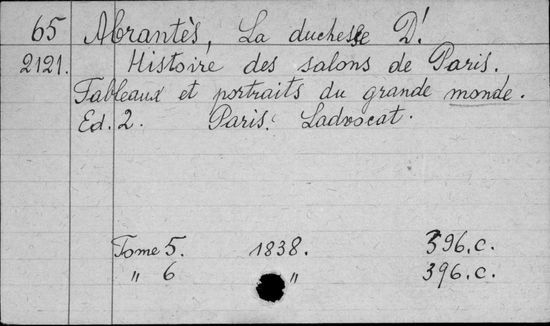 65 Abrantès, La duchesse D'.
2121. Histoire des salons de Paris.
Tableaux et portraits du grande monde.
Ed. 2. Paris. Ladvocat.
Tome 5. 1838. 396.c.
" 6 " 396.c.